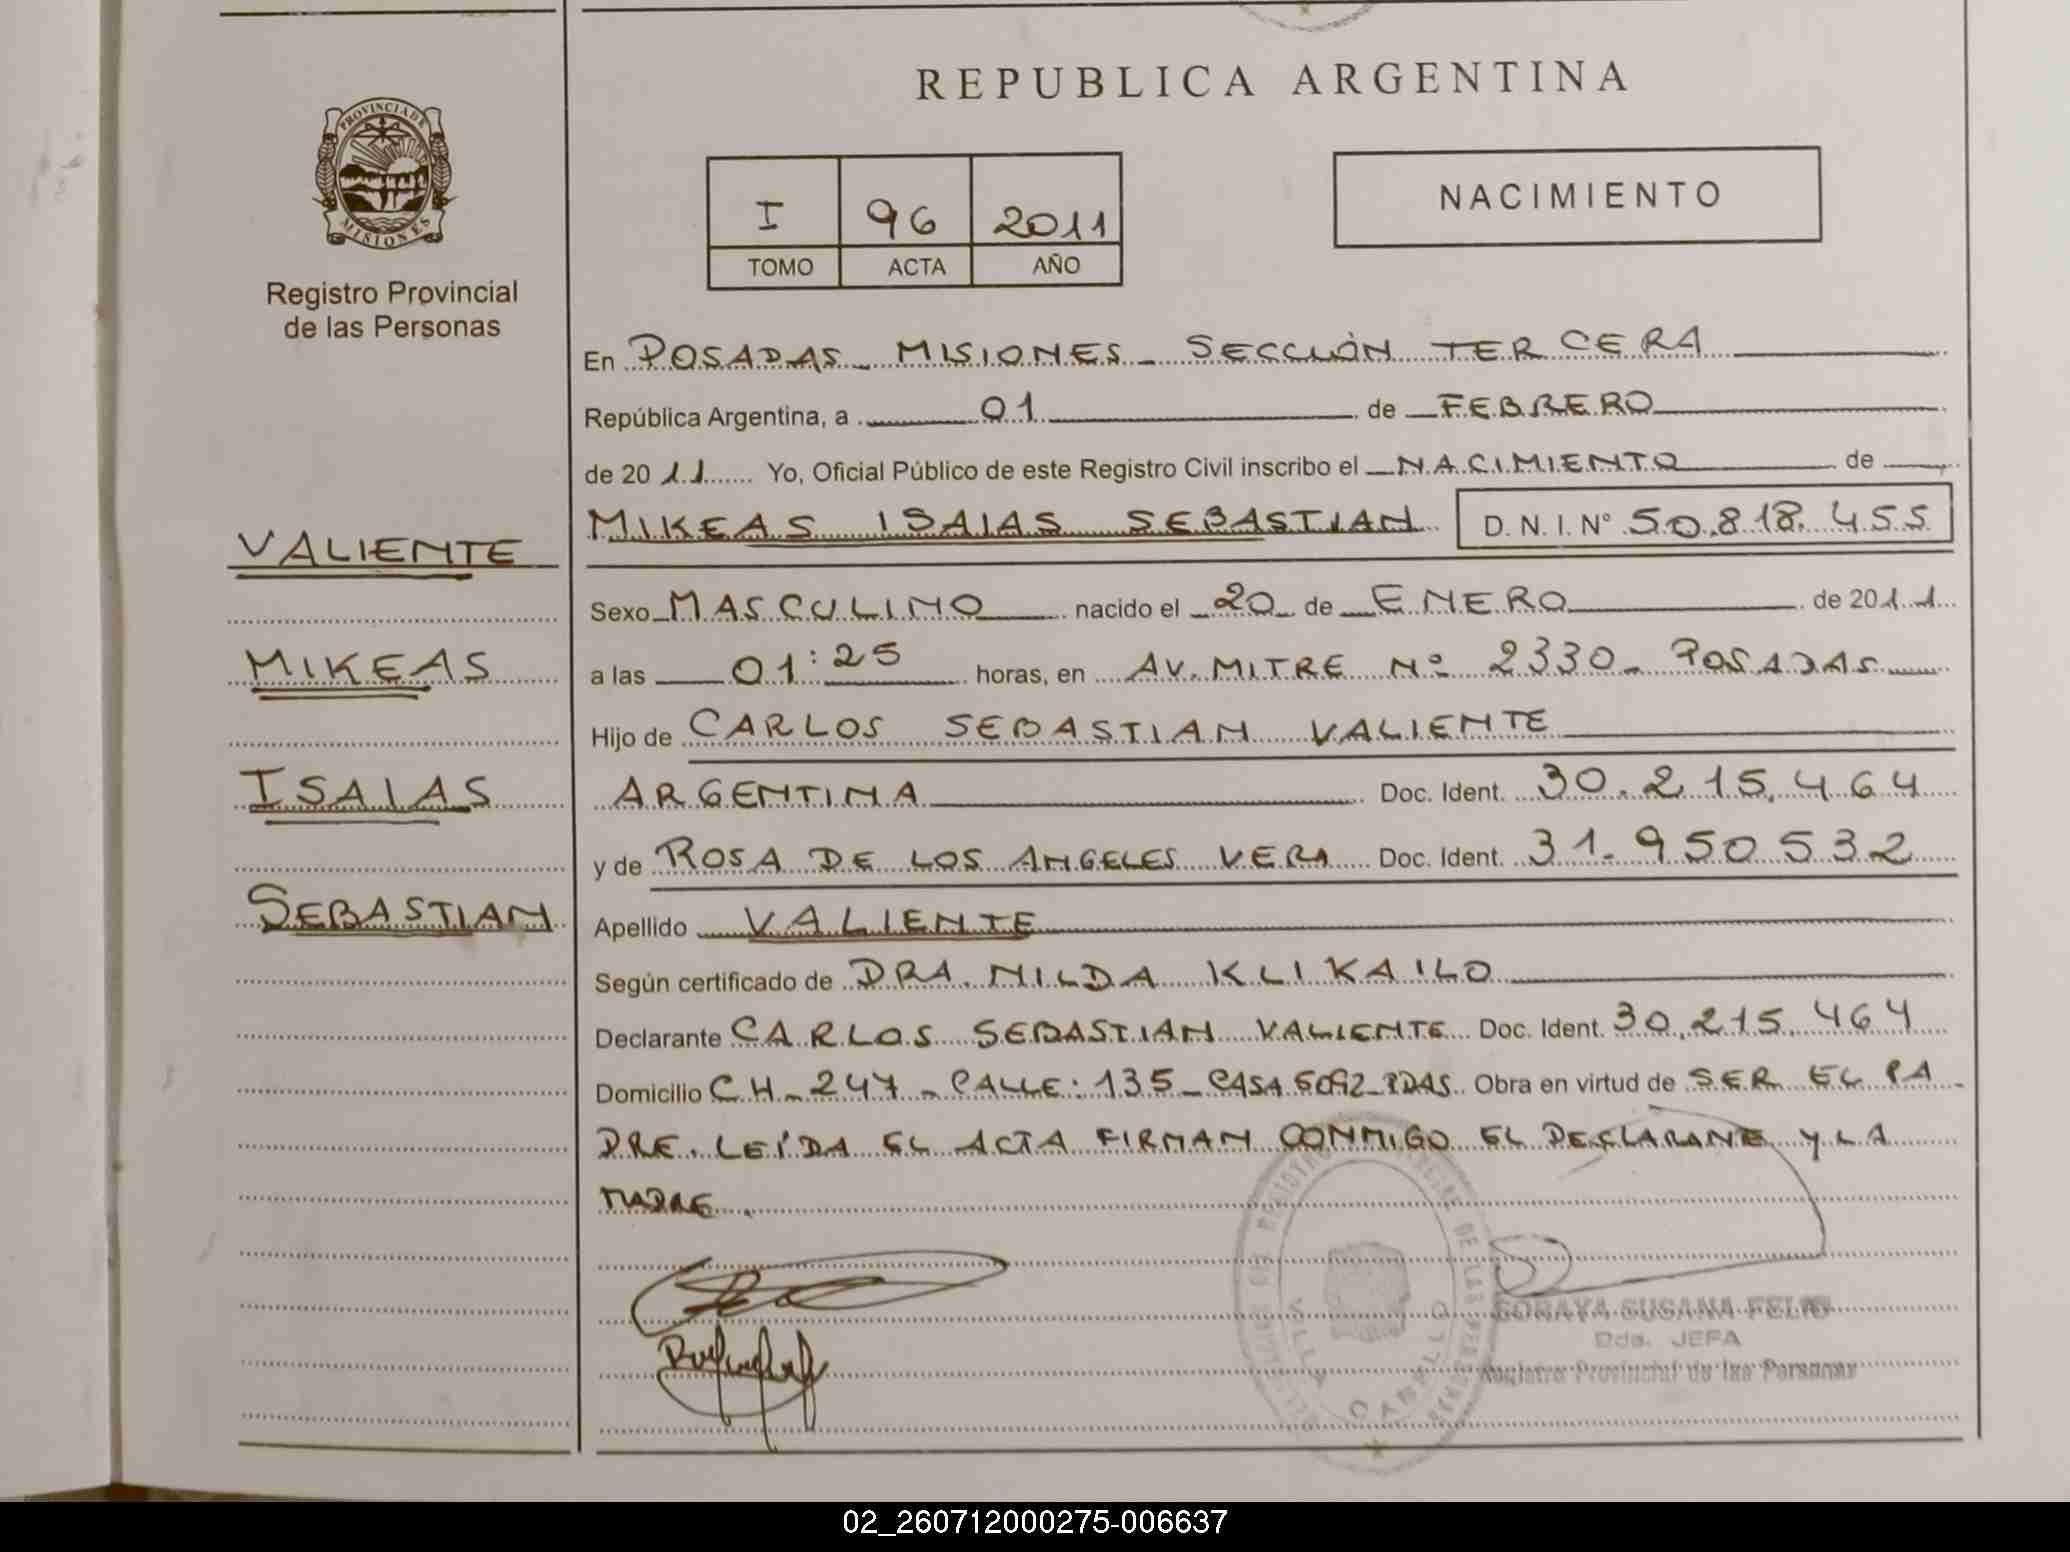 REPUBLICA ARGENTINA
PROVINCIA DE
MISIONES
Registro Provincial
de las Personas
I 96 2011
TOMO ACTA AÑO
NACIMIENTO
En POSADAS - MISIONES - SECCIÓN TERCERA
República Argentina, a 01 de FEBRERO
de 2011 Yo, Oficial Público de este Registro Civil inscribo el NACIMIENTO de
MIKEAS ISAIAS SEBASTIAN D. N. I. N° 50.818.455
VALIENTE
MIKEAS
ISAIAS
SEBASTIAN
Sexo MASCULINO nacido el 20 de ENERO de 2011
a las 01:25 horas, en AV. MITRE Nº 2330 - POSADAS
Hijo de CARLOS SEBASTIAN VALIENTE
ARGENTINA Doc. Ident. 30.215.464
y de ROSA DE LOS ANGELES VERA Doc. Ident. 31.950532
Apellido VALIENTE
Según certificado de DRA. NILDA KLIKAILO
Declarante CARLOS SEBASTIAN VALIENTE Doc. Ident. 30.215.464
Domicilio CH - 247 - CALLE: 135 - CASA PDAS Obra en virtud de SER EL PA-
DRE. LEÍDA EL ACTA FIRMAN CONMIGO EL DECLARANE Y LA
MADRE.
SORAYA SUSANA
Dda. JEFA
Registro Provincial de las Personas
02_260712000275-006637